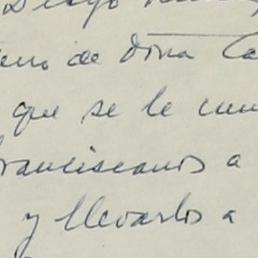 Diego
de doña Ca
que se le
Franciscanos a
y llevarlos a